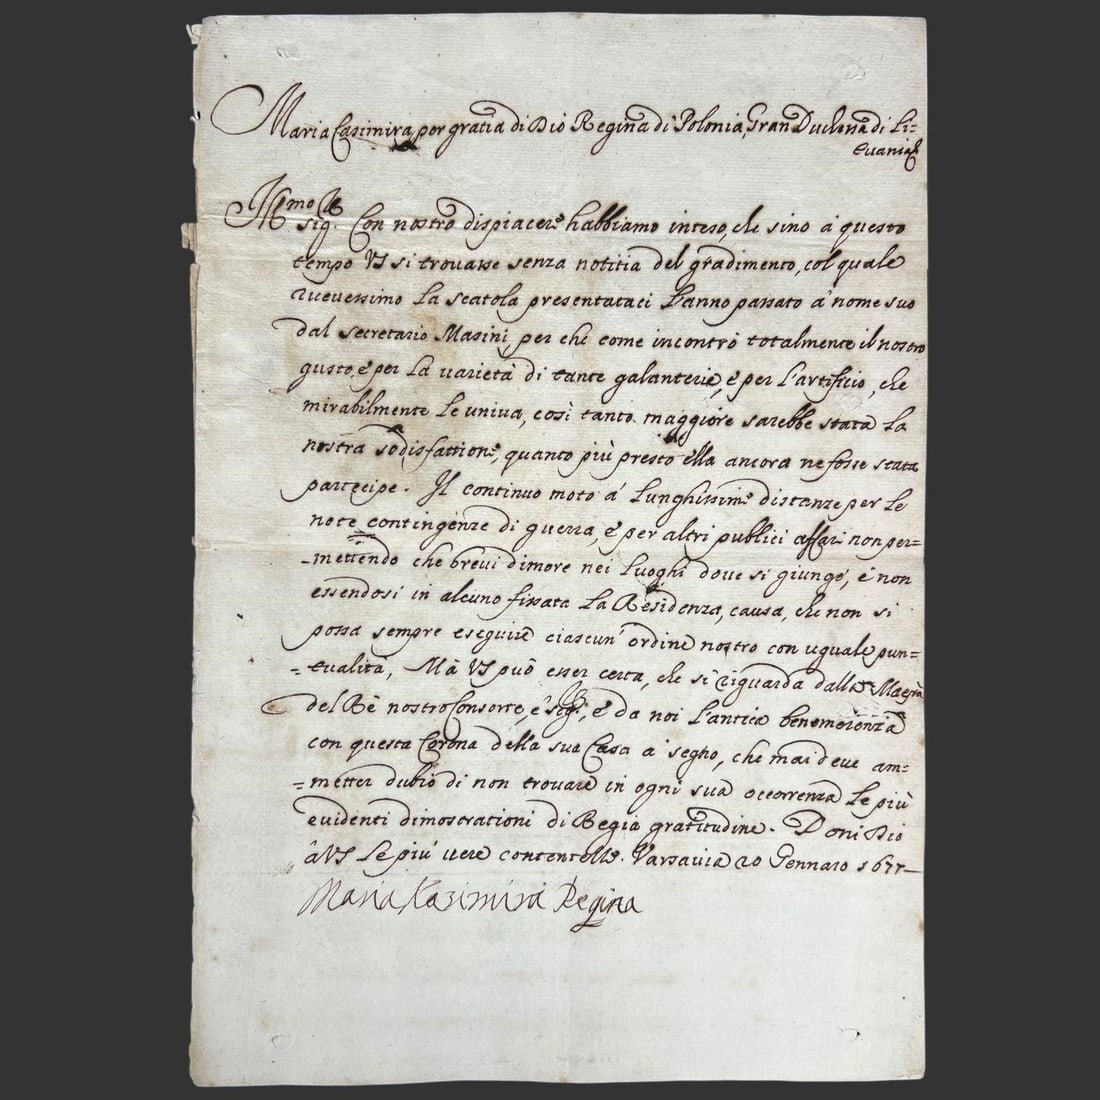 Maria Casimira per gratia di Dio Regina di Polonia, Gran Duchessa di Li=
tuania &
Ill.mo
sig. Con nostro dispiacere habbiamo inteso, che sino à questo
tempo VS si trouasse senza notitia del gradimento, col quale
riceuessimo la scatola presentataci l'anno passato à nome suo
dal secretario Masini, per che come incontrò totalmente il nostro
gusto, e per la varietà di tante galanterie, e per l'artificio, che
mirabilmente le univa, così tanto maggiore sarebbe stata la
nostra sodisfattione, quanto più presto ella ancora ne fosse stata
partecipe. Il continuo moto à lunghissime distanze per le
note contingenze di guerra, e per altri publici affari non per=
=mettendo che brevi dimore nei luoghi doue si giunge, e non
essendosi in alcuno fissata la Residenza, causa, che non si
possa sempre eseguire ciascun' ordine nostro con uguale pun=
=tualità, Mà VS può esser certa, che si riguarda dalla Maestà
del Rè nostro Consorte, e sig.re, e da noi l'antica benemerenza
con questa Corona della sua Casa a segno, che mai deve am=
=metter dubio di non trouare in ogni sua occorrenza le più
evidenti dimostrationi di Regia gratitudine. Doni Dio
à VS le più vere contentezze. Varsavia 20 Gennaro 1677
Maria Kazimira Regina